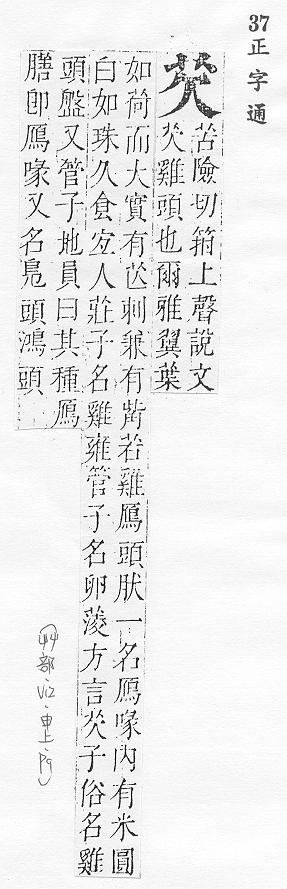 37正字通
芡
苦險切箝上聲說文
芡雞頭也爾雅翼葉
如荷而大實有芒刺兼有觜若雞鴈頭狀一名鴈喙內有米圓
白如珠久食宐人莊子名雞雍管子名卵蔆方言芡子俗名雞
頭盤又管子地員曰其種鴈
膳卽鴈喙又名鳧頭鴻頭
(艸部